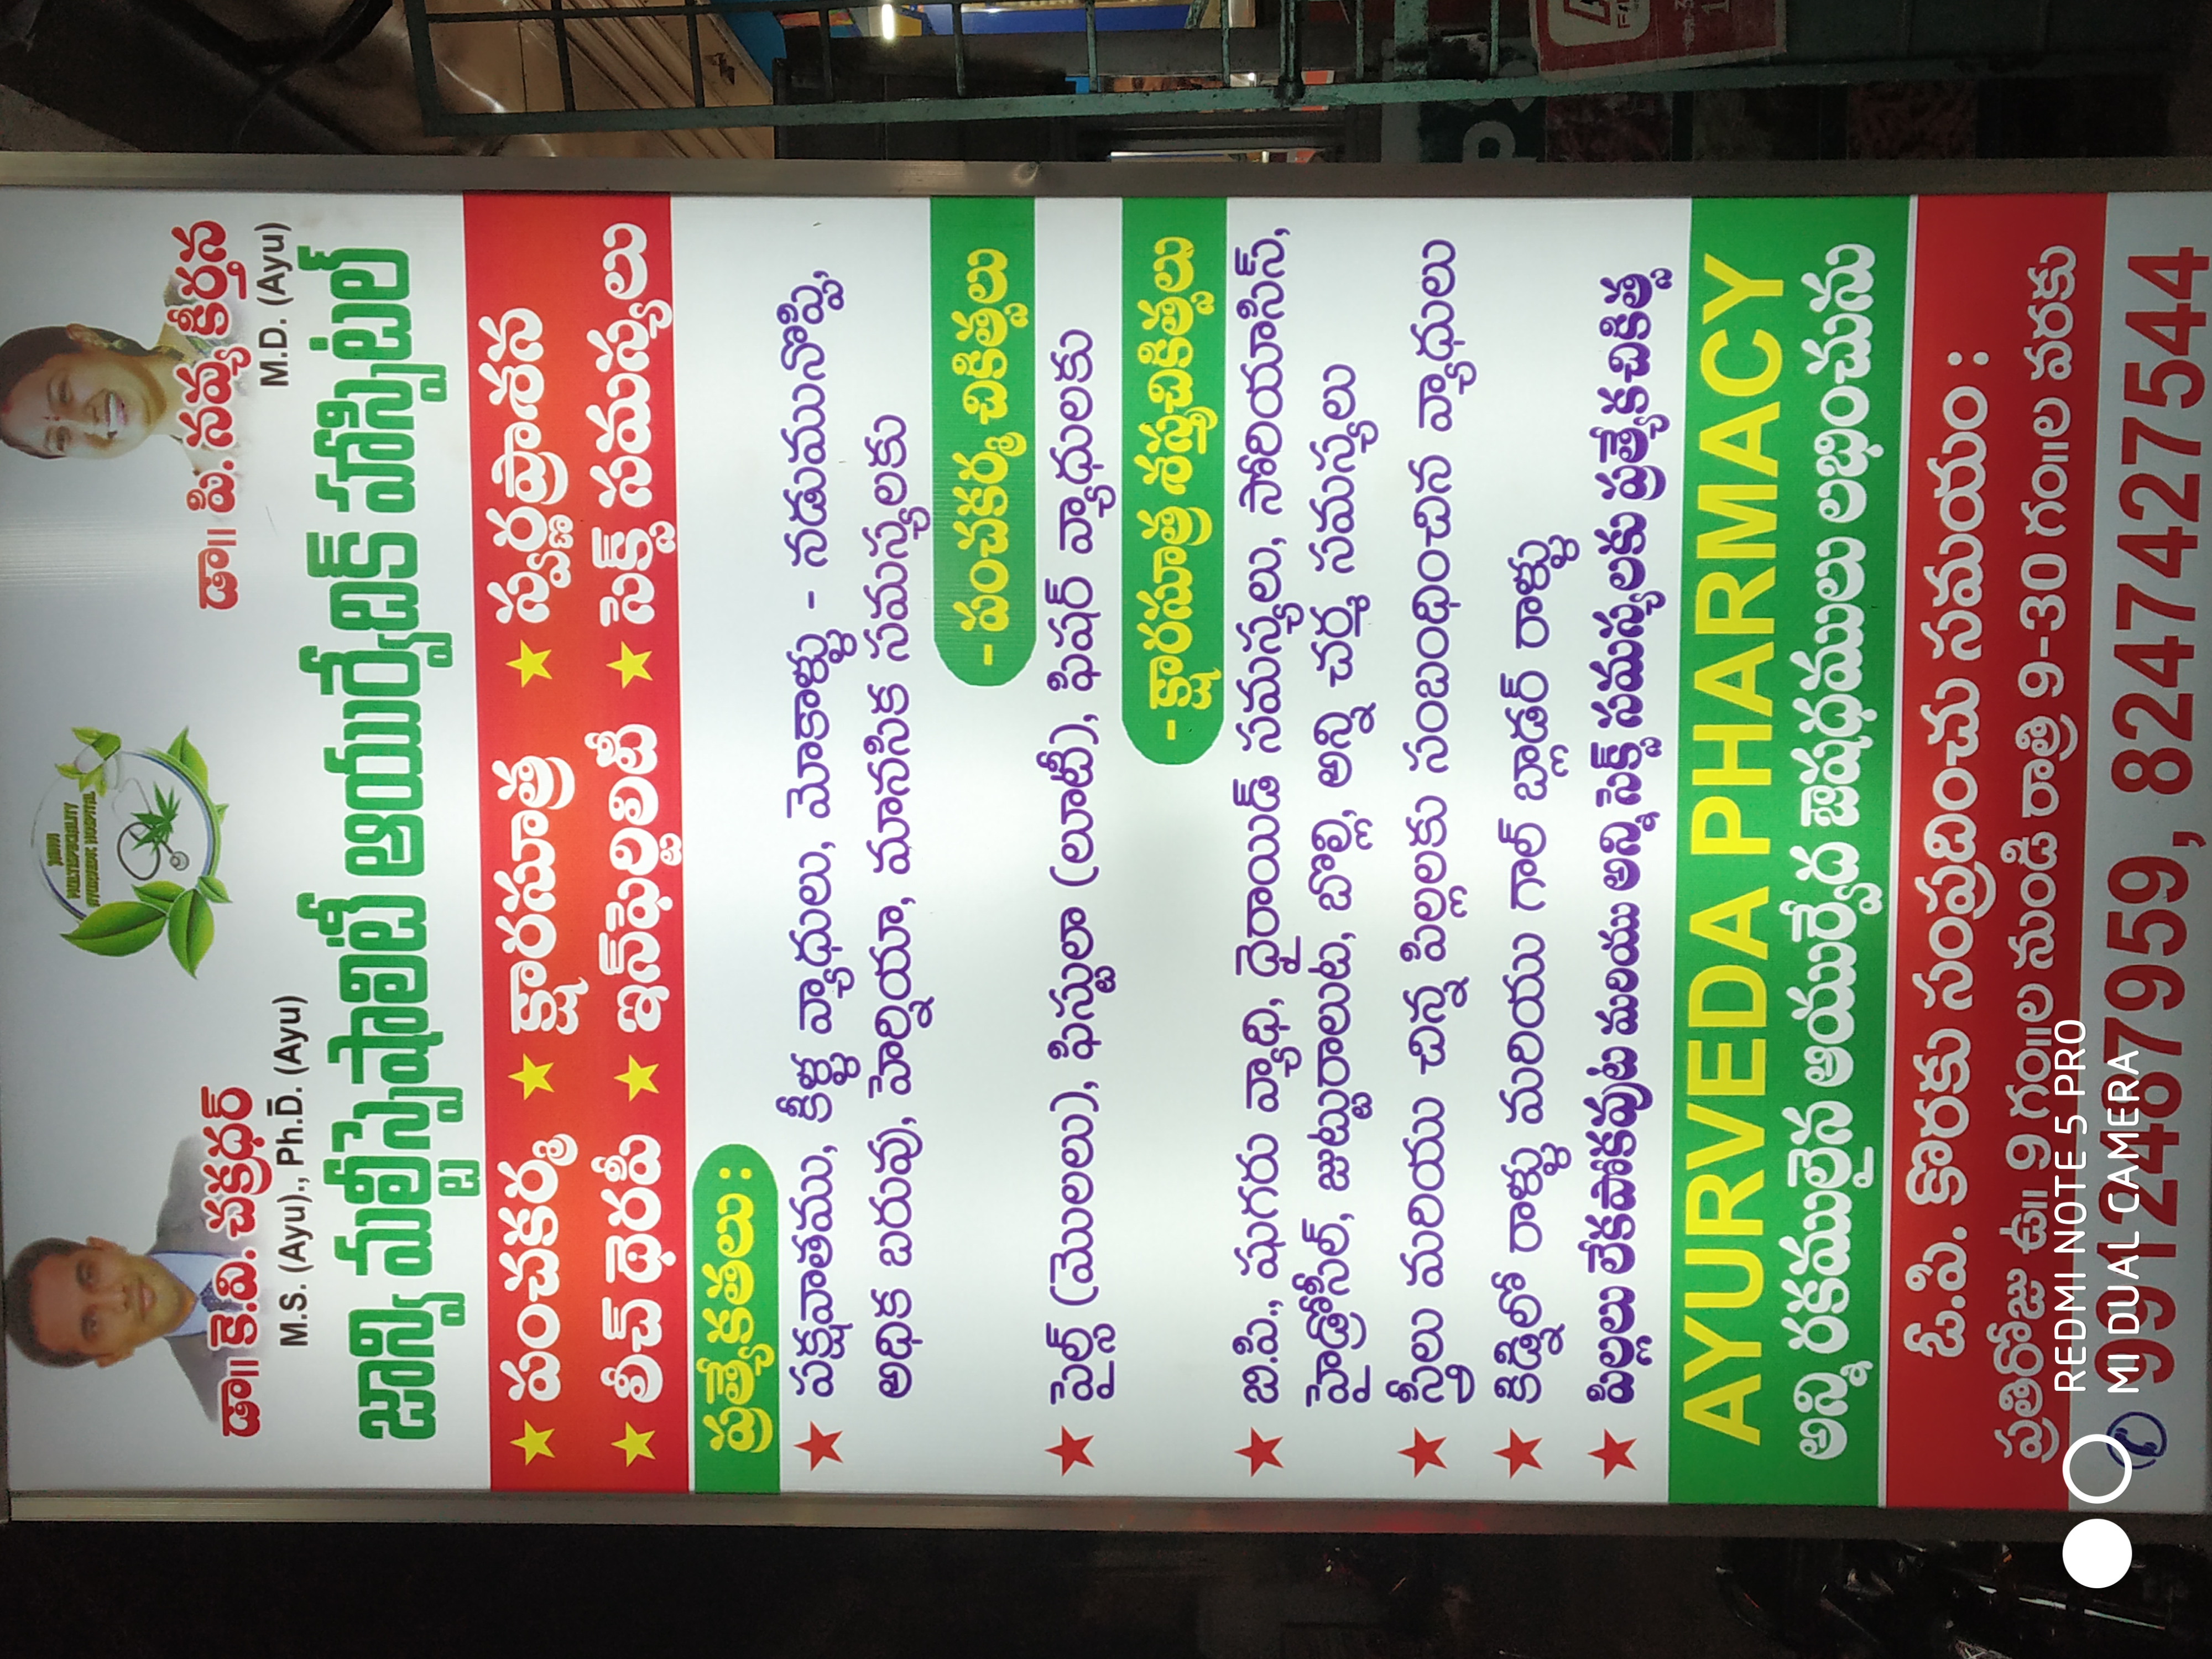 JANVI
MULTISPECIALITY
AYURVEDIC HOSPITAL
డా॥ కె.వి. చక్రధర్
M.S. (Ayu)., Ph.D. (Ayu)
డా॥ పి. నవ్య కీర్తన
M.D. (Ayu)
జాన్వి మల్టీస్పెషాలిటీ ఆయుర్వేదిక్ హాస్పిటల్
★ పంచకర్మ ★ క్షారసూత్ర ★ స్వర్ణప్రాశన
★ లీచ్ థెరపీ ★ ఇన్‌ఫెర్టిలిటీ ★ సెక్స్ సమస్యలు
ప్రత్యేకతలు :
★ పక్షవాతము, కీళ్ల వ్యాధులు, మోకాళ్ళు - నడుమునొప్పి,
అధిక బరువు, హెర్నియా, మానసిక సమస్యలకు
- పంచకర్మ చికిత్సలు
★ పైల్స్ (మొలలు), ఫిస్టులా (లూటీ), ఫిషర్ వ్యాధులకు
- క్షారసూత్ర శస్త్రచికిత్సలు
★ ఐ.పి., షుగరు వ్యాధి, థైరాయిడ్ సమస్యలు, సోరియాసిస్,
హైడ్రోసిల్, జుట్టురాలుట, బొల్లి, అన్ని చర్మ సమస్యలు
★ స్త్రీలు మరియు చిన్న పిల్లలకు సంబంధించిన వ్యాధులు
★ కిడ్నీలో రాళ్ళు మరియు గాల్ బ్లాడర్ రాళ్ళు
★ పిల్లలు లేకపోకవుట మరియు అన్ని సెక్స్ సమస్యలకు ప్రత్యేక చికిత్స
AYURVEDA PHARMACY
అన్ని రకములైన ఆయుర్వేద ఔషధములు లభించును
ఓ.పి. కొరకు సంప్రదించు సమయం :
ప్రతిరోజు ఉ॥ 9 గం॥ల నుండి రాత్రి 9-30 గం॥ల వరకు
9912487959, 8247427544
REDMI NOTE 5 PRO
MI DUAL CAMERA